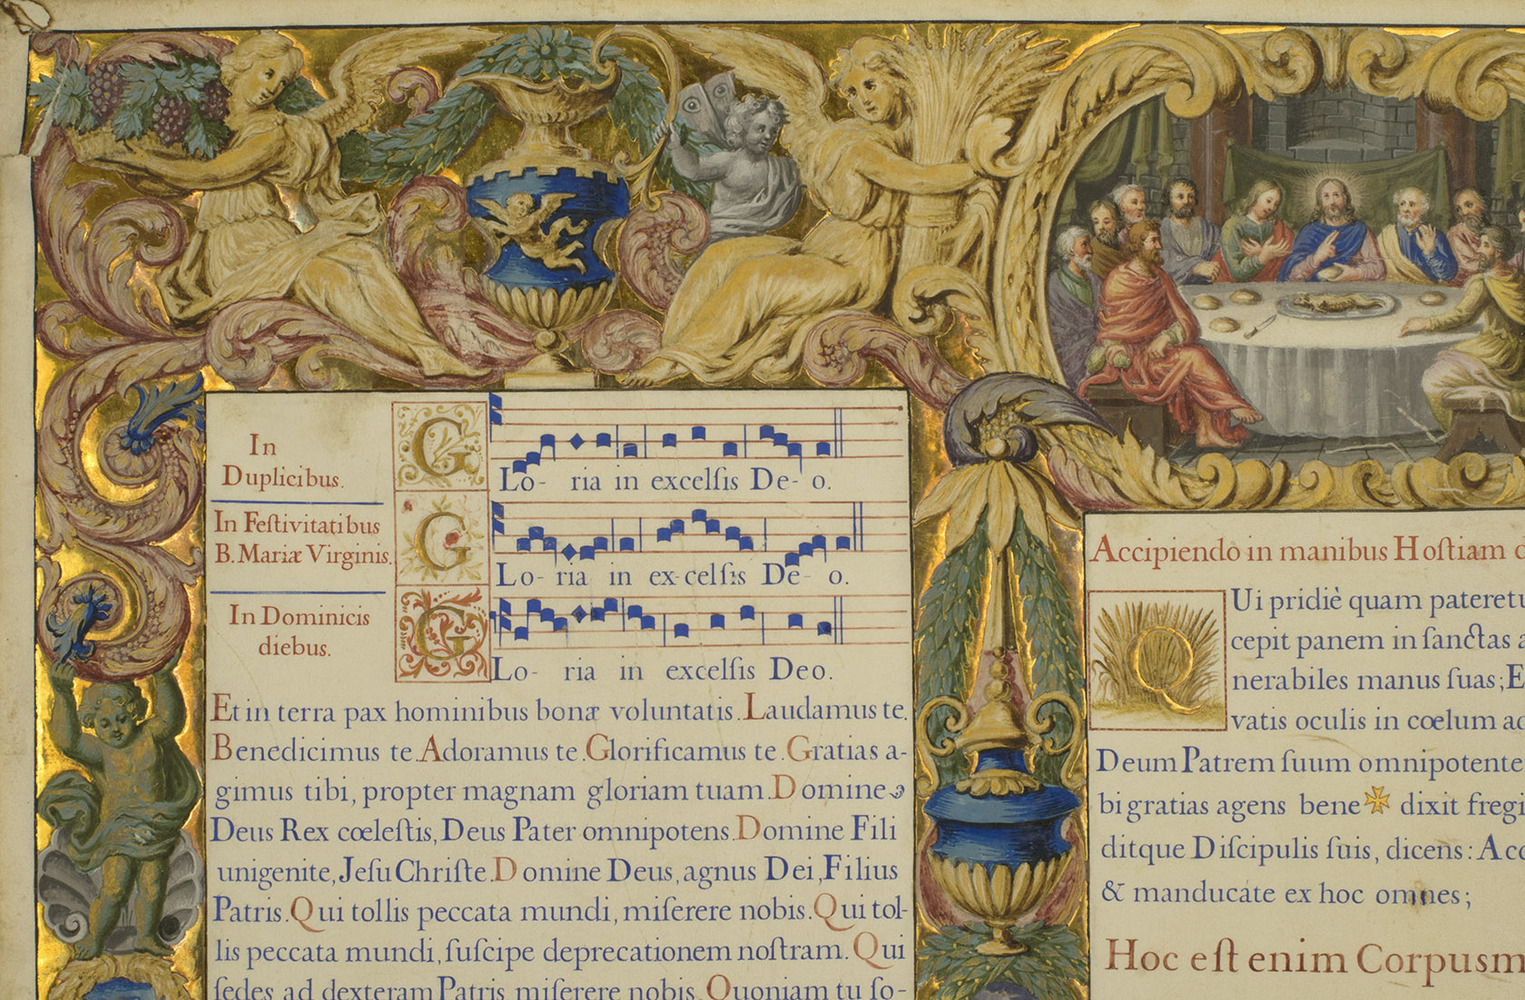 In
Duplicibus.
G Lo- ria in excelſis De- o.
In Feſtivitatibus
B. Mariæ Virginis.
G Lo- ria in ex-celſis De- o.
In Dominicis
diebus.
G Lo- ria in excelſis Deo.
Et in terra pax hominibus bonæ voluntatis. Laudamus te.
Benedicimus te. Adoramus te. Glorificamus te. Gratias a-
gimus tibi, propter magnam gloriam tuam. Domine
Deus Rex cœleſtis, Deus Pater omnipotens. Domine Fili
unigenite, Jeſu Chriſte. Domine Deus, agnus Dei, Filius
Patris. Qui tollis peccata mundi, miſerere nobis. Qui tol-
lis peccata mundi, ſuſcipe deprecationem noſtram. Qui
ſedes ad dexteram Patris miſerere nobis. Quoniam tu ſo-
Accipiendo in manibus Hoſtiam
QUi pridiè quam pateretu
cepit panem in ſanctas a
nerabiles manus ſuas; E
vatis oculis in cœlum ad
Deum Patrem ſuum omnipotente
bi gratias agens bene✠dixit fregi
ditque Diſcipulis ſuis, dicens: Acc
& manducate ex hoc omnes;
Hoc eſt enim Corpus m